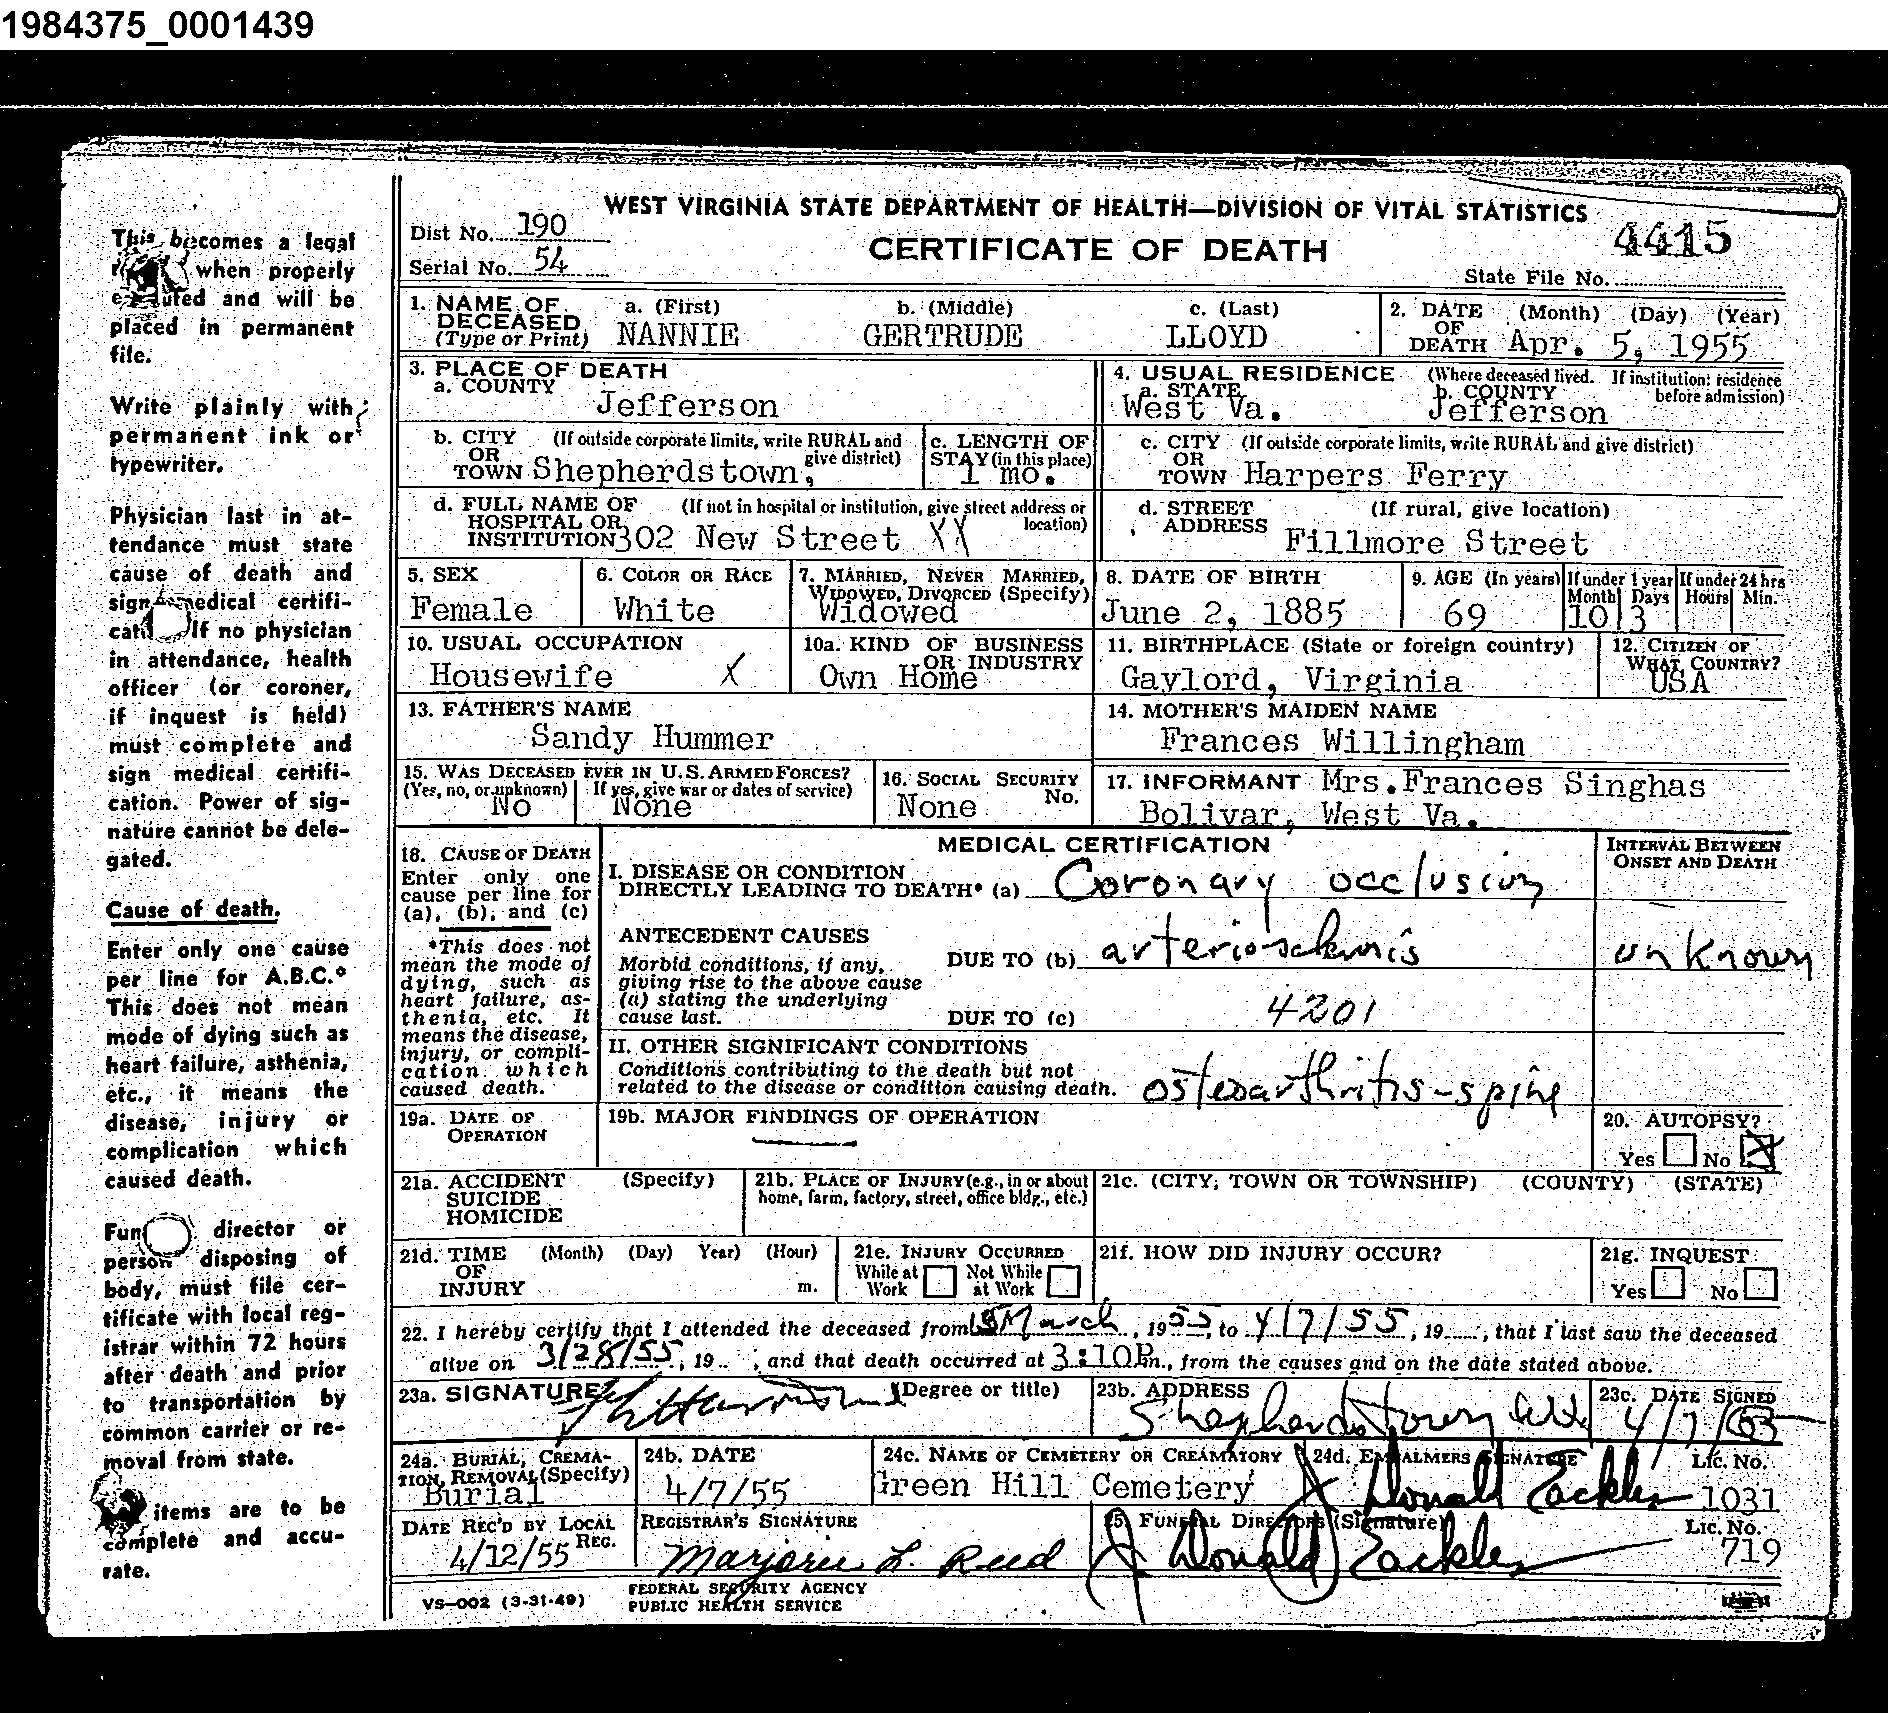 1984375_0001439
This becomes a legal
when properly
and will be
placed in permanent
file.
Write plainly with
permanent ink or
typewriter.
Physician last in at-
tendance must state
cause of death and
sign medical certifi-
If no physician
in attendance, health
officer (or coroner,
if inquest is held)
must complete and
sign medical certifi-
cation. Power of sig-
nature cannot be dele-
gated.
Cause of death.
Enter only one cause
per line for A.B.C.*
This does not mean
mode of dying such as
heart failure, asthenia,
etc., it means the
disease, injury or
complication which
caused death.
director or
person disposing of
body, must file cer-
tificate with local reg-
istrar within 72 hours
after death and prior
to transportation by
common carrier or re-
moval from state.
items are to be
complete and accu-
rate.
WEST VIRGINIA STATE DEPARTMENT OF HEALTH—DIVISION OF VITAL STATISTICS
Dist No. 190
CERTIFICATE OF DEATH
4415
Serial No. 54
State File No.
1. NAME OF DECEASED (Type or Print) a. (First) NANNIE b. (Middle) GERTRUDE c. (Last) LLOYD
2. DATE OF DEATH (Month) (Day) (Year) Apr. 5, 1955
3. PLACE OF DEATH
a. COUNTY Jefferson
4. USUAL RESIDENCE (Where deceased lived. If institution: residence before admission)
a. STATE West Va. b. COUNTY Jefferson
b. CITY OR TOWN (If outside corporate limits, write RURAL and give district) Shepherdstown,
c. LENGTH OF STAY (in this place) 1 mo.
c. CITY OR TOWN (If outside corporate limits, write RURAL and give district) Harpers Ferry
d. FULL NAME OF HOSPITAL OR INSTITUTION (If not in hospital or institution, give street address or location) 302 New Street XX
d. STREET ADDRESS (If rural, give location) Fillmore Street
5. SEX Female
6. COLOR OR RACE White
7. MARRIED, NEVER MARRIED, WIDOWED, DIVORCED (Specify) Widowed
8. DATE OF BIRTH June 2, 1885
9. AGE (In years) 69 If under 1 year Month 10 Days 3 If under 24 hrs Hours Min.
10. USUAL OCCUPATION Housewife X
10a. KIND OF BUSINESS OR INDUSTRY Own Home
11. BIRTHPLACE (State or foreign country) Gaylord, Virginia
12. CITIZEN OF WHAT COUNTRY? USA
13. FATHER'S NAME Sandy Hummer
14. MOTHER'S MAIDEN NAME Frances Willingham
15. WAS DECEASED EVER IN U.S. ARMED FORCES? (Yes, no, or unknown) No If yes, give war or dates of service) None
16. SOCIAL SECURITY No. None
17. INFORMANT Mrs.Frances Singhas
Bolivar, West Va.
18. CAUSE OF DEATH
Enter only one
cause per line for
(a), (b), and (c)
*This does not
mean the mode of
dying, such as
heart failure, as-
thenia, etc. It
means the disease,
injury, or compli-
cation which
caused death.
MEDICAL CERTIFICATION
INTERVAL BETWEEN ONSET AND DEATH
I. DISEASE OR CONDITION
DIRECTLY LEADING TO DEATH* (a) Coronary occlusion
ANTECEDENT CAUSES
Morbid conditions, if any,
giving rise to the above cause
(a) stating the underlying
cause last.
DUE TO (b) arteriosclerosis unknown
DUE TO (c) 4201
II. OTHER SIGNIFICANT CONDITIONS
Conditions contributing to the death but not
related to the disease or condition causing death. osteoarthritis-spine
19a. DATE OF OPERATION
19b. MAJOR FINDINGS OF OPERATION
20. AUTOPSY?
Yes No X
21a. ACCIDENT SUICIDE HOMICIDE (Specify)
21b. PLACE OF INJURY (e.g., in or about home, farm, factory, street, office bldg., etc.)
21c. (CITY, TOWN OR TOWNSHIP) (COUNTY) (STATE)
21d. TIME OF INJURY (Month) (Day) Year) (Hour) m.
21e. INJURY OCCURRED While at Work Not While at Work
21f. HOW DID INJURY OCCUR?
21g. INQUEST
Yes No
22. I hereby certify that I attended the deceased from March, 1955, to 4/7/55, 19, that I last saw the deceased
alive on 3/28/55, 19 , and that death occurred at 3:10P.m., from the causes and on the date stated above.
23a. SIGNATURE (Degree or title)
23b. ADDRESS Shepherdstown
23c. DATE SIGNED 4/7/
24a. BURIAL, CREMATION, REMOVAL (Specify) Burial
24b. DATE 4/7/55
24c. NAME OF CEMETERY OR CREAMATORY Green Hill Cemetery
24d. EMBALMERS SIGNATURE J Donald Eackles Lic. No. 1031
DATE REC'D BY LOCAL REG. 4/12/55
REGISTRAR'S SIGNATURE Marjorie L. Reed
25. FUNERAL DIRECTORS (Signature) J Donald Eackles Lic. No. 719
VS-002 (3-31-49)
FEDERAL SECURITY AGENCY
PUBLIC HEALTH SERVICE